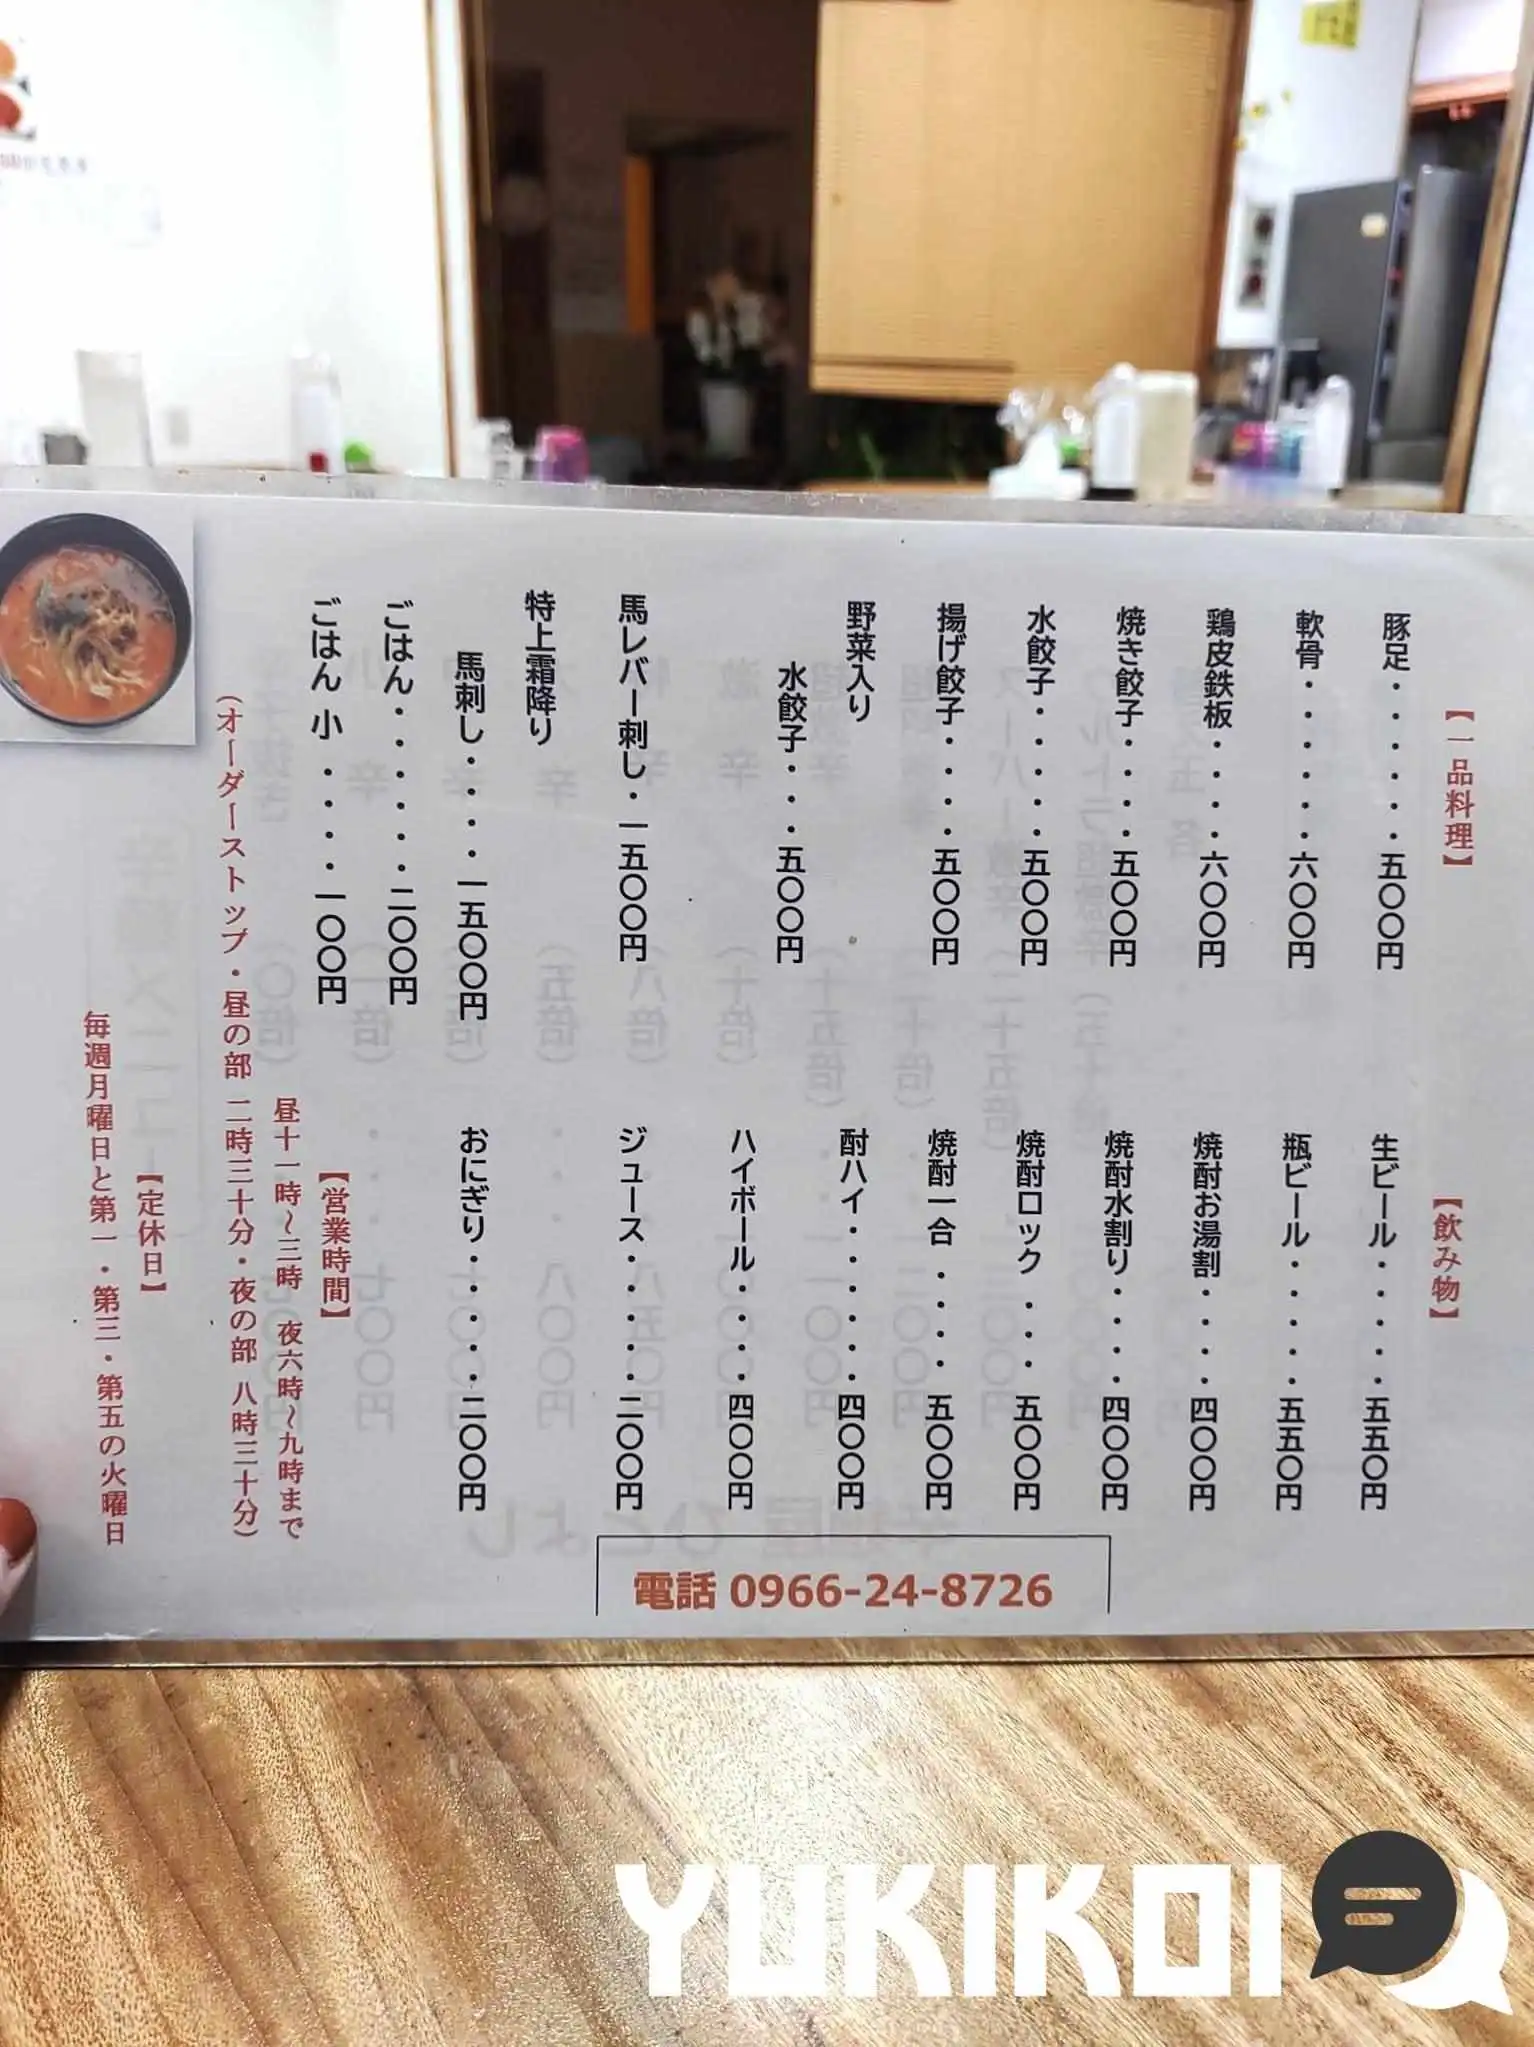 【一品料理】
豚足・・・・・・五〇〇円
軟骨・・・・・・六〇〇円
鶏皮鉄板・・・・六〇〇円
焼き餃子・・・・五〇〇円
水餃子・・・・・五〇〇円
揚げ餃子・・・・五〇〇円
野菜入り
水餃子・・・五〇〇円
馬レバー刺し・一五〇〇円
特上霜降り
馬刺し・・・・一五〇〇円
ごはん・・・・・・二〇〇円
ごはん 小・・・・一〇〇円
【飲み物】
生ビール・・・・・五五〇円
瓶ビール・・・・・五五〇円
焼酎お湯割・・・・四〇〇円
焼酎水割り・・・・四〇〇円
焼酎ロック・・・五〇〇円
焼酎一合・・・・五〇〇円
酎ハイ・・・・・・四〇〇円
ハイボール・・・・四〇〇円
ジュース・・・・・二〇〇円
おにぎり・・・・・二〇〇円
【営業時間】
昼十一時～三時 夜六時～九時まで
（オーダーストップ・昼の部 二時三十分・夜の部 八時三十分）
【定休日】
毎週月曜日と第一・第三・第五の火曜日
電話 0966-24-8726
YUKIKOI